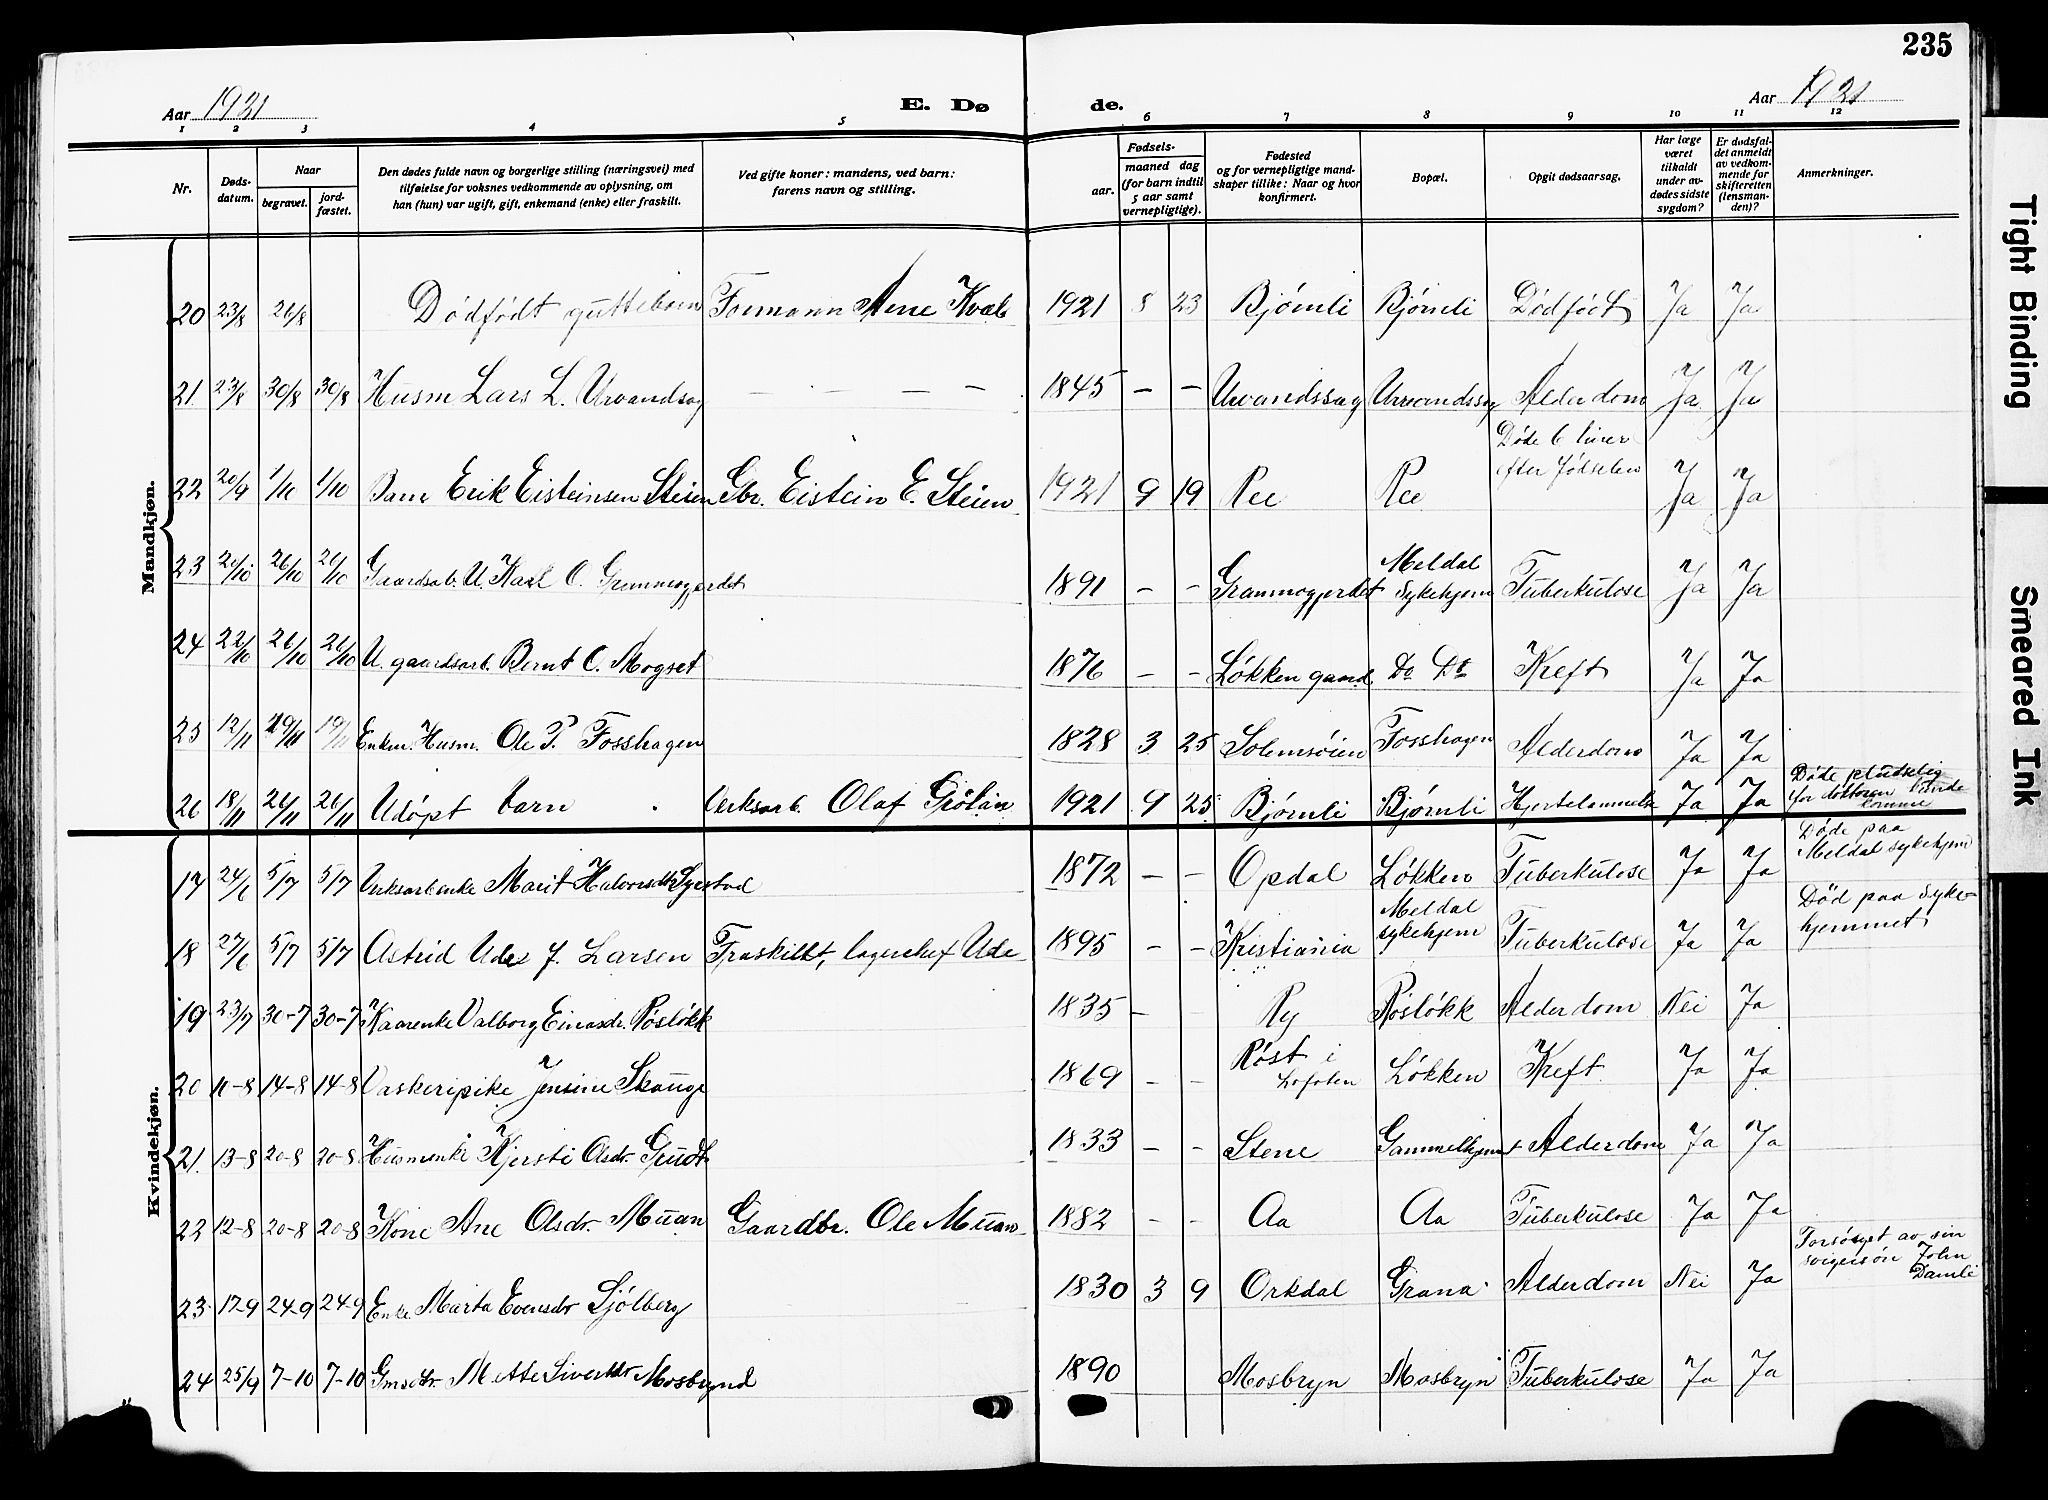 235
Aar 1921 E. Dø de. Aar 1921
1 2 3 4 5 6 7 8 9 10 11 12
Nr.
Døds-datum.
Naar
begravet.
jord-fæstet.
Den dødes fulde navn og borgerlige stilling (næringsvei) med
tilføielse for voksnes vedkommende av oplysning, om
han (hun) var ugift, gift, enkemand (enke) eller fraskilt.
Ved gifte koner: mandens, ved barn:
farens navn og stilling.
Fødsels-
aar.
maaned dag
(for barn indtil
5 aar samt
vernepligtige).
Fødested
og for vernepligtige mand-
skaper tillike: Naar og hvor
konfirmert.
Bopæl.
Opgit dødsaarsag.
Har læge
været
tilkaldt
under av-
dødes sidste
sygdom?
Er dødsfal-
det anmeldt
av vedkom-
mende for
skifteretten
(lensman-
den)?
Anmerkninger.
Mandkjøn.
20 23/8 26/8 Dødfødt guttebarn Formann Arne Kvale 1921 8 23 Bjørnli Bjørnli Dødfødt Ja Ja
21. 23/8 30/8 30/8 Husm Lars L. Urvandsag — — — 1845 — — Urvandssag Urvandssag Alderdom Ja Ja
22 20/9 1/10 1/10 Barn Erik Eisteinsen Steien Gbr. Eistein E. Steien 1921 9 19 Ree Ree Døde 6 timer efter fødselen Ja Ja
23 26/10 26/10 Gaardsarb. U. Karl O. Grammogjerdet 1891 - - Grammogjerdet Meldal Sykehjem Tuberkulose Ja Ja
24 22/10 26/10 26/10 U. gaardsarb. Bernt O. Mogset 1876 - - Løkken gaard Do Do Kreft Ja Ja
25 12/11 19/11 19/11 Enkem. Husm. Ole P. Fosshagen 1828 3 25 Solemsøien Fosshagen Alderdom Ja Ja
26 18/11 26/11 26/11 Udøpt barn Verksarb. Olaf Grötan 1921 9 25 Bjørnli Bjørnli Hjertelammelse Ja Ja Døde pludselig før doktoren kunde komme
Kvindekjøn.
17 24/6 5/7 5/7 Verksarb.enke Marit Halvorsdtr 1872 - - Opdal Løkken Tuberkulose Ja Ja Døde paa Meldal sykehjem
18 27/6 5/7 5/7 Astrid Ude f. Larsen Fraskillt, lagerchef Ude 1895 - - Kristiania Meldal sykehjem Tuberkulose Ja Ja Død paa syke-hjemmet
19 23/7 30-7 30-7 Kaarenke Valborg Einarsdr. Røsløkk 1835 - - Ry Røsløkk Alderdom Nei Ja
20 11-8 14-8 14-8 Vaskeripike Jensine Skauge 1869 - - Røst i Lofoten Løkken Kreft Ja Ja
21. 13-8 20-8 20-8 Husmenke Kjersti Olsdr. Grudt 1833 - - Stene Gammelhjemmet Alderdom Ja Ja
22 12-8 20-8 20-8 Kone Ane Olsdr. Muan Gaardbr. Ole Muan 1882 - - Aa Aa Tuberkulose Ja Ja
23 17-9 24-9 24-9 Enke. Marta Evensdr Sjölberg 1830 3 9 Orkdal Grana Alderdom Nei Ja Forsørget av sin svigersøn John Damli
24 25/9 7-10 7-10 Gmsdtr. Mette Sivertdtr Mosbrynd 1890 Mosbryn Mosbryn Tuberkulose Ja Ja
Tight Binding
Smeared Ink